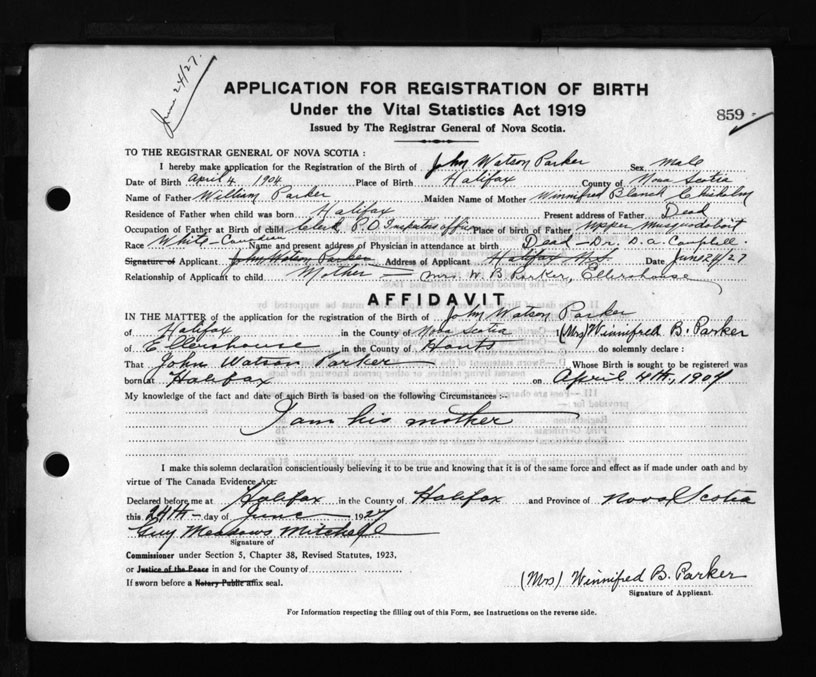 June 24/27.
APPLICATION FOR REGISTRATION OF BIRTH
Under the Vital Statistics Act 1919
859
Issued by The Registrar General of Nova Scotia.
TO THE REGISTRAR GENERAL OF NOVA SCOTIA :
I hereby make application for the Registration of the Birth of John Watson Parker Sex Male
Date of Birth April 4 1904 Place of Birth Halifax County of Nova Scotia
Name of Father William Parker Maiden Name of Mother Winnifred Blanch
Residence of Father when child was born Halifax Present address of Father Dead
Occupation of Father at Birth of child Clerk P.O Inspectors office Place of birth of Father Upper Musquodoboit
Race White-Canadian Name and present address of Physician in attendance at birth Dead - Dr. D. A. Campbell.
Signature of Applicant John Watson Parker Address of Applicant Halifax N.S Date June 24/27
Relationship of Applicant to child Mother — Mrs. W. B. Parker, Ellershouse
AFFIDAVIT
IN THE MATTER of the application for the registration of the Birth of John Watson Parker
of Halifax in the County of Nova Scotia I (Mrs) Winnifred B. Parker
of Ellershouse in the County of Hants do solemnly declare :
That John Watson Parker Whose Birth is sought to be registered was
born at Halifax on April 4th, 1904
My knowledge of the fact and date of such Birth is based on the following Circumstances :-
I am his mother
I make this solemn declaration conscientiously believing it to be true and knowing that it is of the same force and effect as if made under oath and by
virtue of The Canada Evidence Act.
Declared before me at Halifax in the County of Halifax and Province of Nova Scotia
this 24th - day of June 1927
Guy Meadows Mitchell
Signature of
Commissioner under Section 5, Chapter 38, Revised Statutes, 1923,
or Justice of the Peace in and for the County of
If sworn before a Notary Public affix seal.
(Mrs) Winnifred B. Parker
Signature of Applicant.
For Information respecting the filling out of this Form, see Instructions on the reverse side.